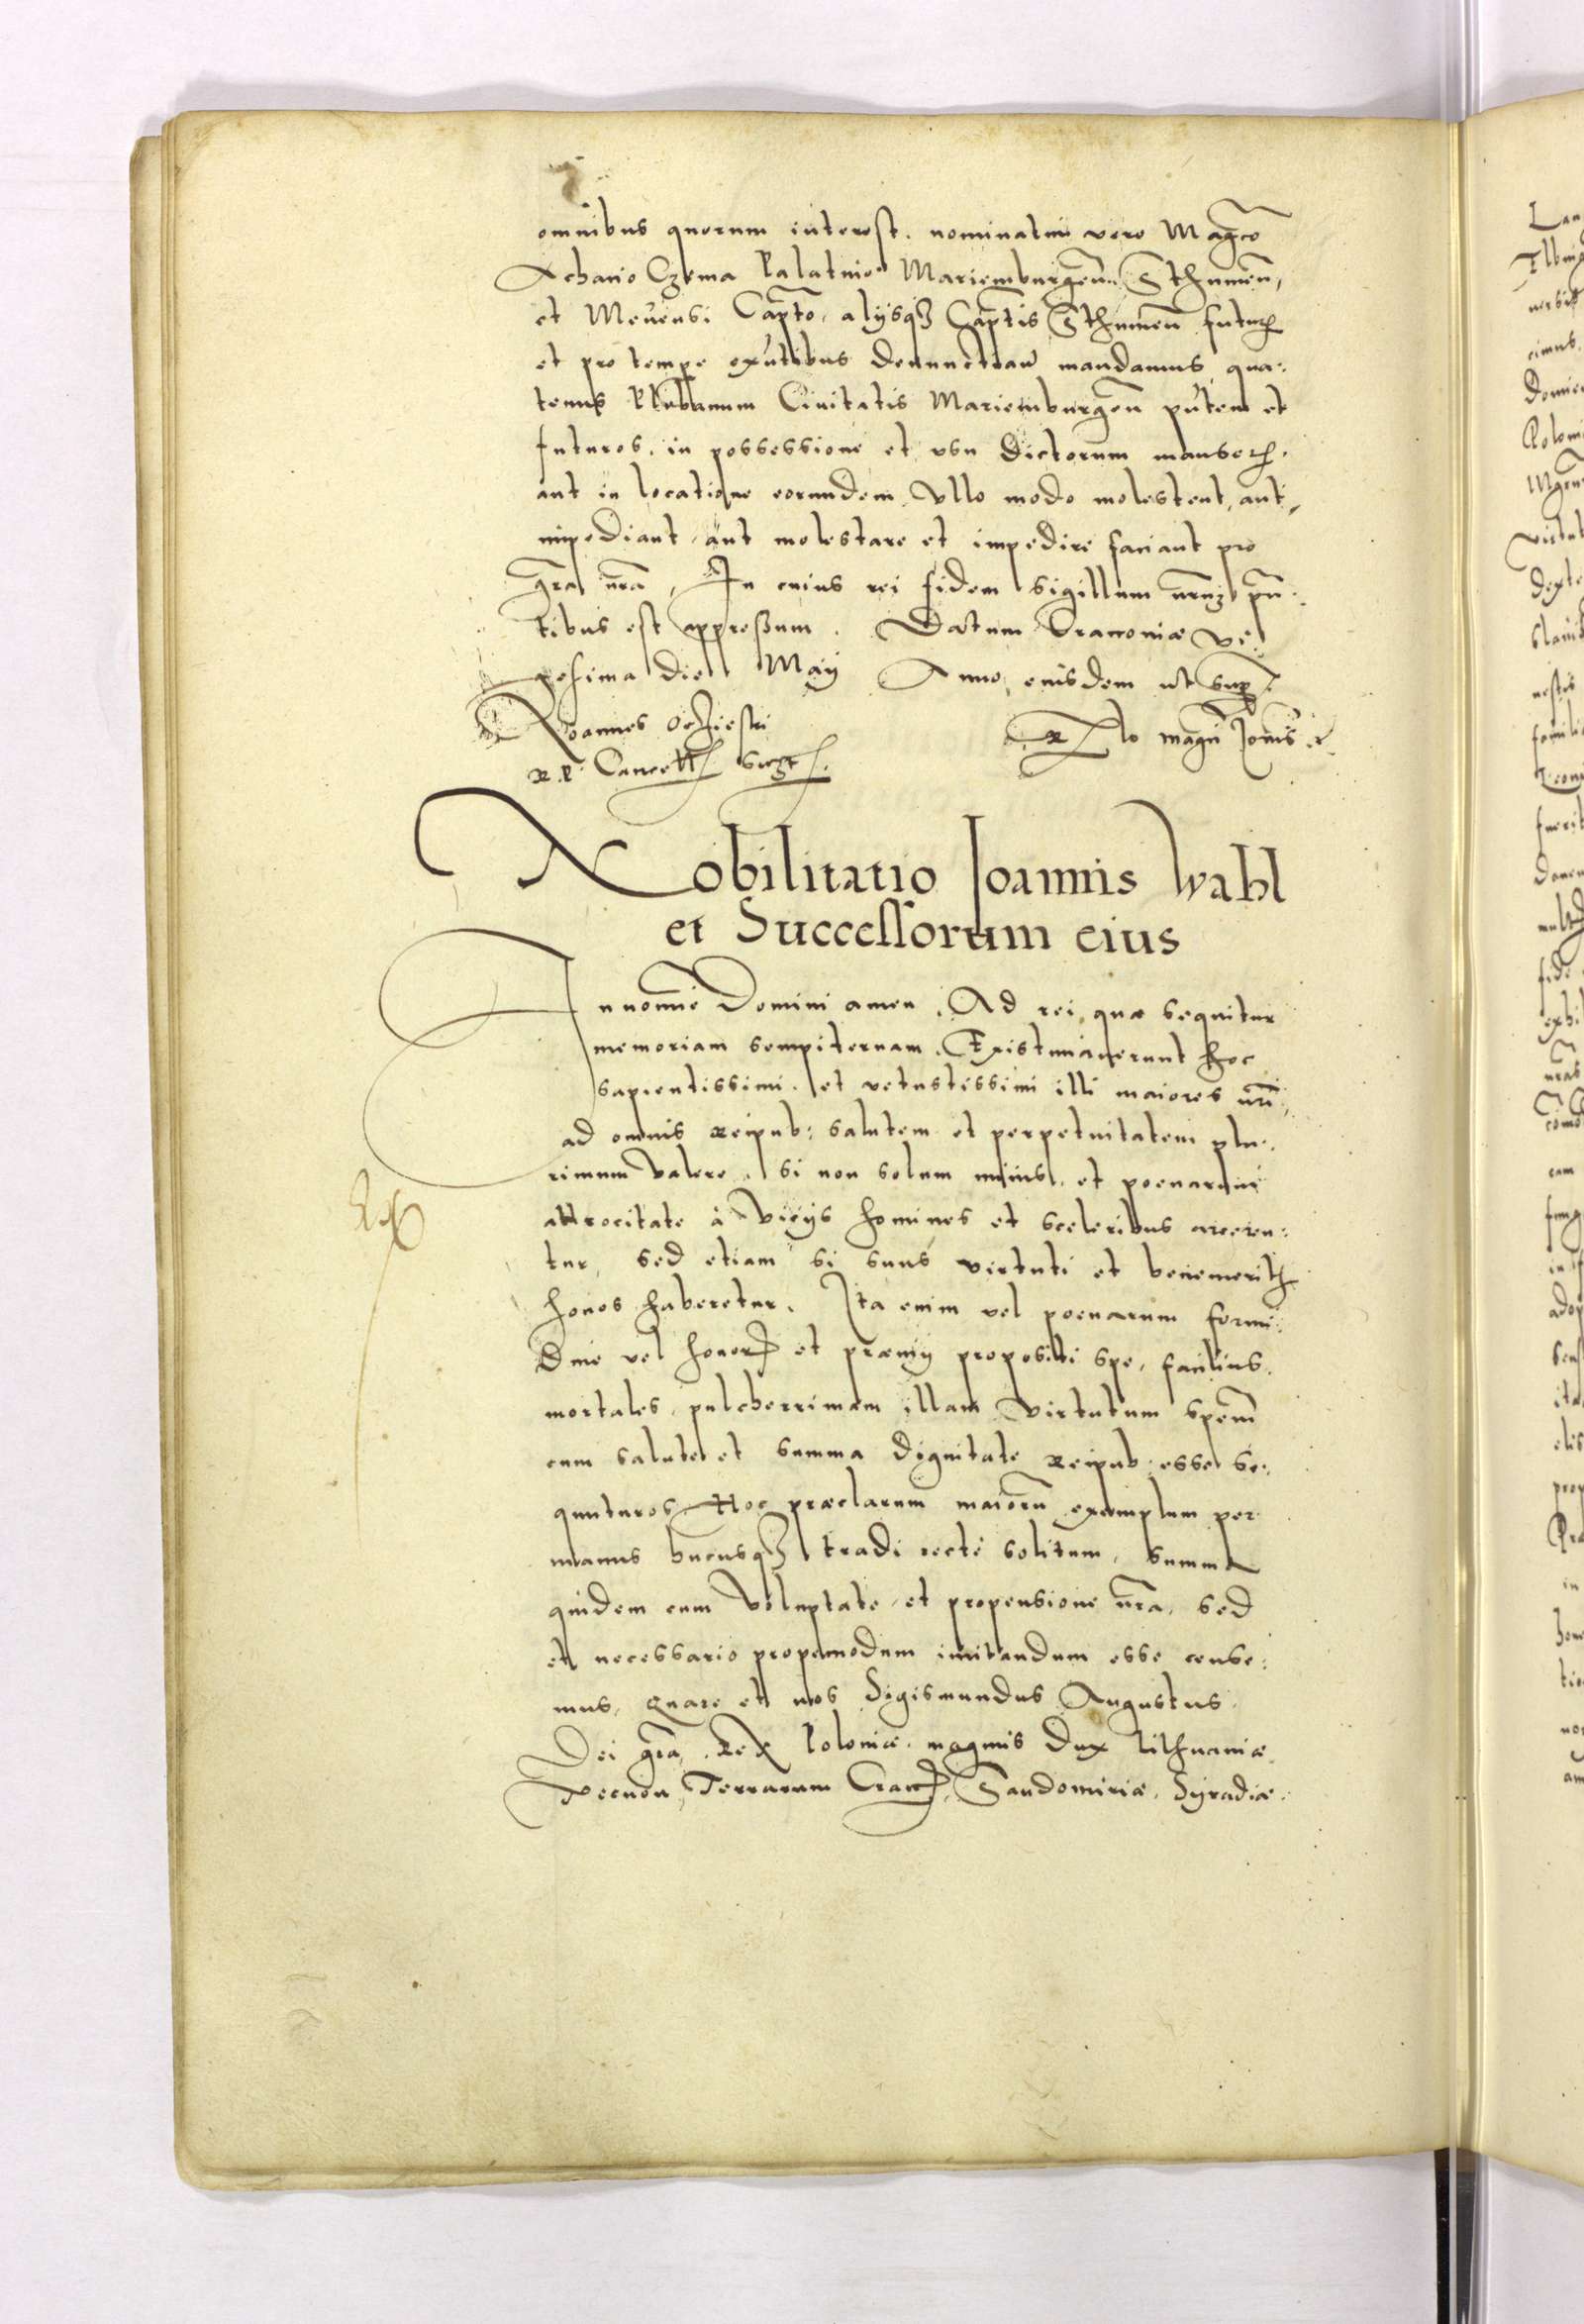 omnibus quorum interest. nominatim vero Magco
Achacio Czema Palatino Mariemburgen Sthumen,
et Mevensi Capto, alijsq3 Captis Sthumen futur
et pro tempe exntibus denuncttaw mandamus, qua:
tenus Plebanum Ciuitatis Mariemburgen pntem et
futuros. in possessione et usu dictorum mansor.
aut in locatione eorundem Ullo modo molestent, aut,
impediant aut molestare et impedire faciant pro
gra nra, In cuius rei fidem sigillum nrum pn:
tibus est appressum. Datum Cracoviæ vi:
gesima die Maij Anno, eiusdem ut supr.
Joannes Ocziesski
R. P. Cancell Sszt.
Rlo magn Joannis
Nobilitatio Joannis Wahl
et Successorum eius
In nomie Domini amen. Ad rei, quæ sequitur
memoriam sempiternam. Existimaverunt hoc
sapientissimi. et vetustissimi illi maiores nri,
ad omnis Reipub: salutem et perpetuitatem plu:
rimum valere. si non solum minis, et poenarum
attrocitate à Vicijs homines et sceleribus arceren:
tur, sed etiam si suus virtuti et benemerit
honos haberetur. Ita enim vel poenarum formi:
dine vel honor et præmij propositi spe, facilius.
mortales, pulcherrimam illam Virtutum spem
cum salute et summa dignitate Reipub: esse se:
quuturos. Hoc præclarum maioru exemplum per
manus hucusq3 tradi recte solitum, summa
quidem cum Voluptate, et propensione nra, sed
et necessario propemodum imitandum esse cense:
mus, Quare et nos Sigismundus Augustus.
Dei gra, Rex Poloniæ. magnus Dux Lithuaniæ.
Necnon, Terrarum Crac, Sandomiriæ, Syradiæ.